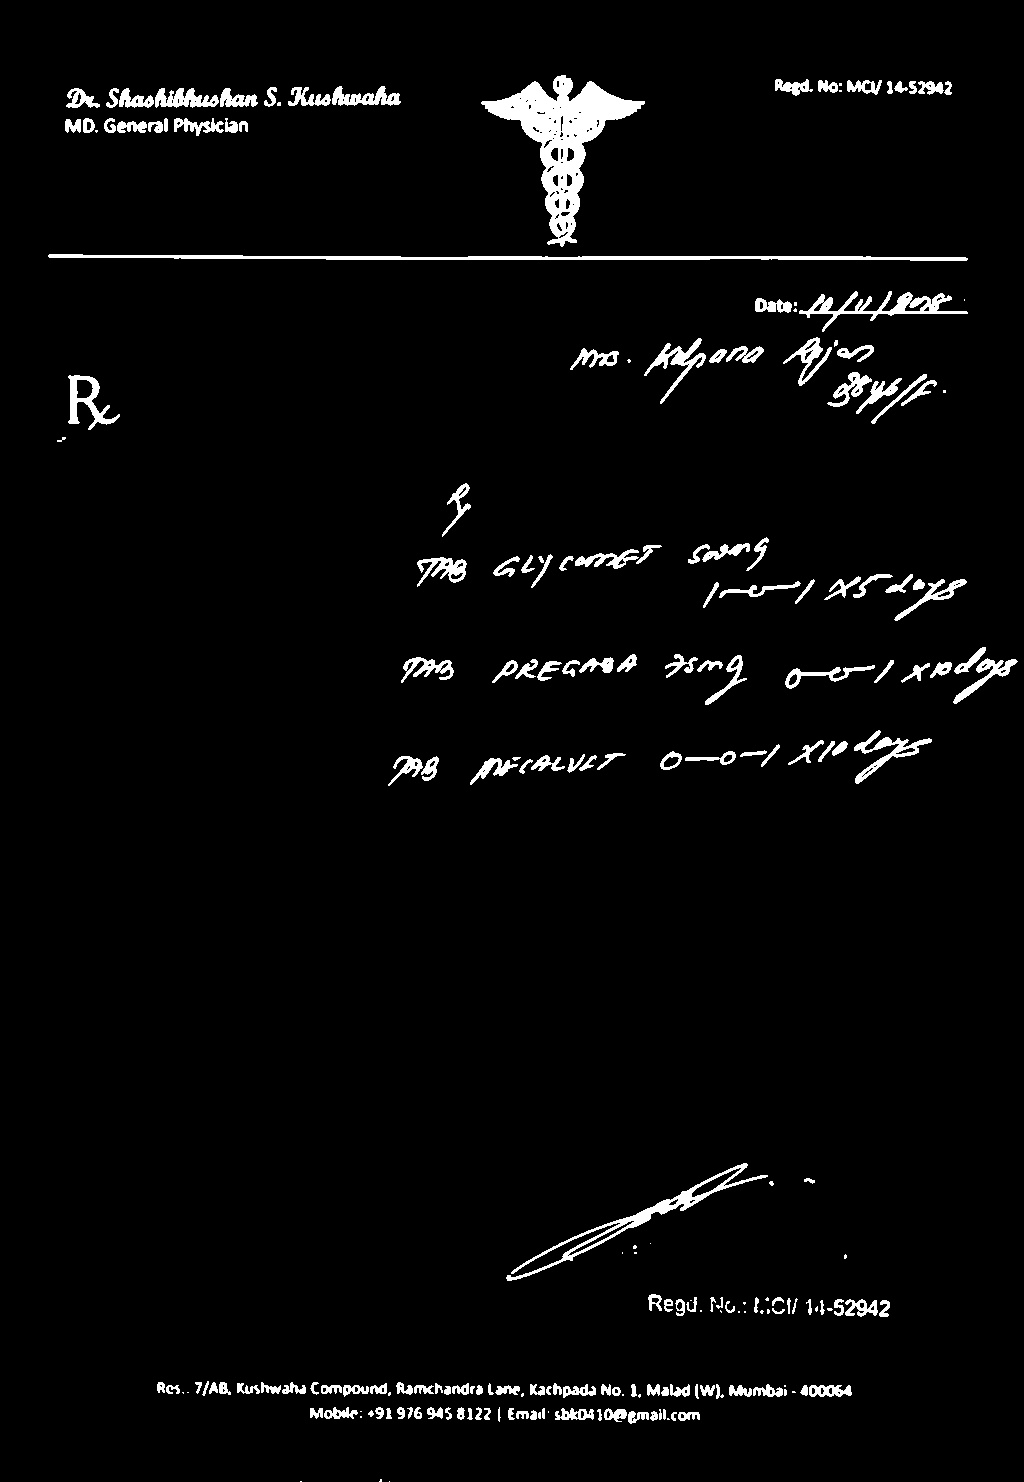 Dr. Shashibhushan S. Kushwaha
MD. General Physician
Regd. No: MCI/ 14-52942
Date: 10/11/2018
Mrs. Kalpana Rajan
38yrs/F.
Rx
Rx
TAB GLYCOMET 500mg
1-0-1 x5 days
TAB PREGABA 75mg 0-0-1 x10 days
TAB MECALVET 0-0-1 x10 days
Regd. No.: MCI/ 14-52942
Res.: 7/AB, Kushwaha Compound, Ramchandra Lane, Kachpada No. 1, Malad (W), Mumbai - 400064
Mobile: +91 976 945 8122 | Email: sbk0410@gmail.com